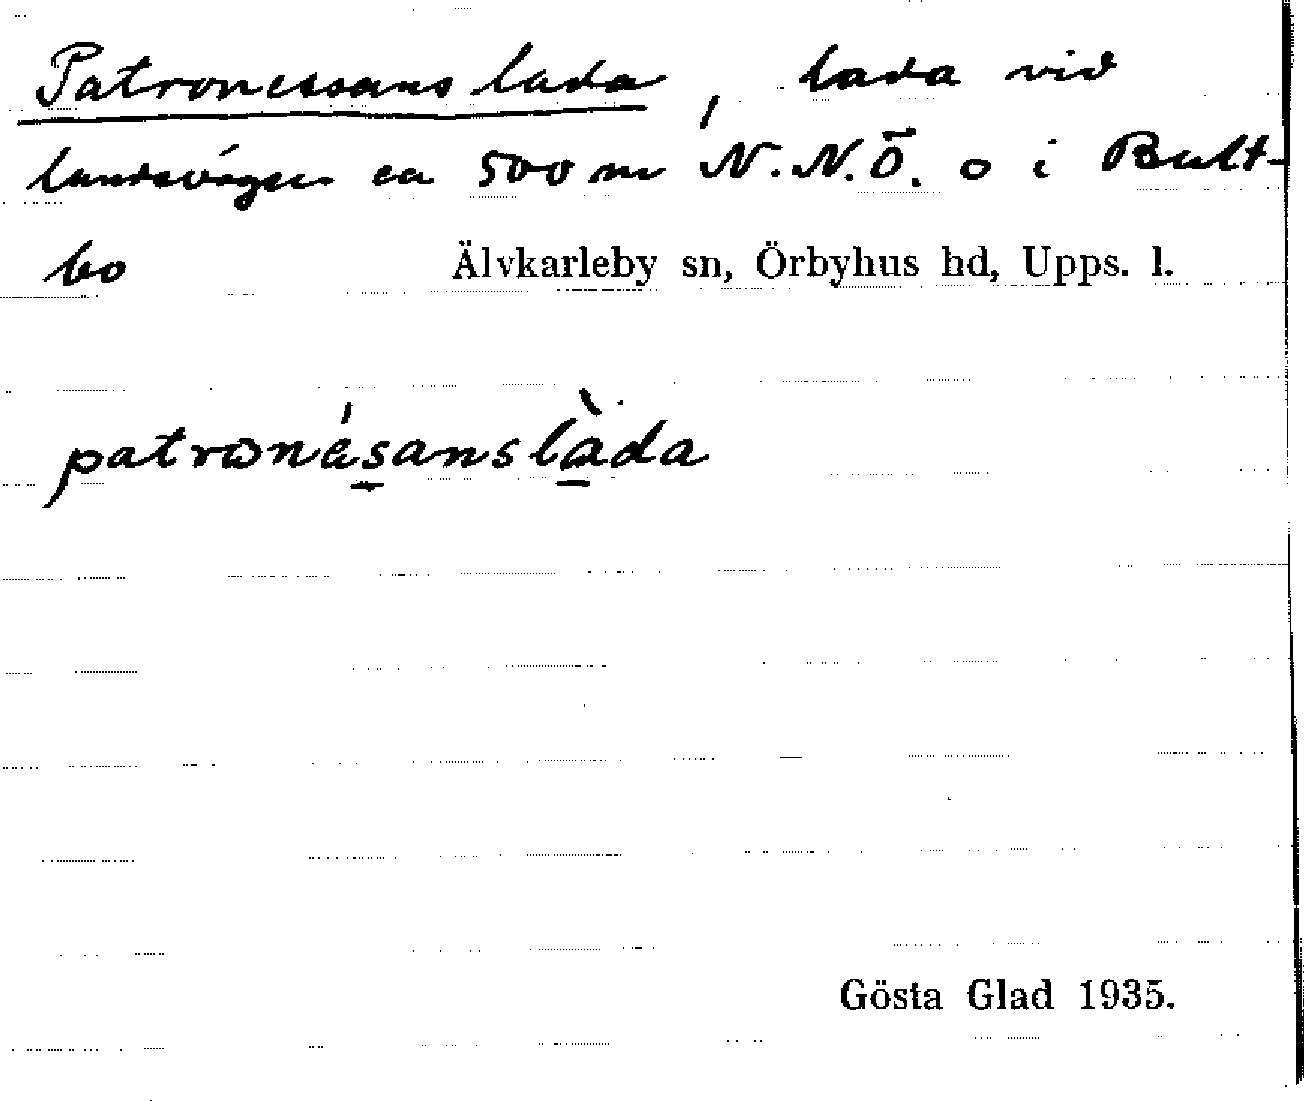 Patronessans lada, lada vid
landsvägen ca 500 m N.N.Ö. o i Bult-
bo Älvkarleby sn, Örbyhus hd, Upps. l.
patronésanslàda
Gösta Glad 1935.